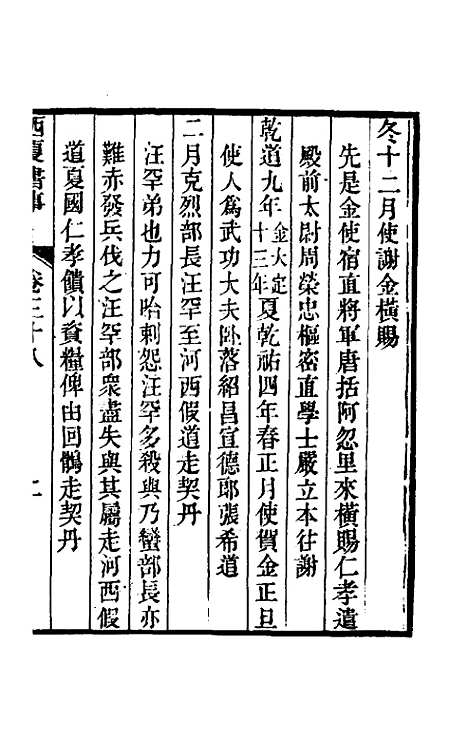 冬十二月使謝金橫賜
先是金使宿直將軍唐括阿忽里來橫賜仁孝遣
殿前太尉周榮忠樞密直學士嚴立本往謝
乾道九年金大定十三年夏乾祐四年春正月使賀金正旦
使人爲武功大夫臥落紹昌宣德郎張希道
二月克烈部長汪罕至河西假道走契丹
汪罕弟也力可哈剌怨汪罕多殺與乃蠻部長亦
難赤發兵伐之汪罕部衆盡失與其屬走河西假
道夏國仁孝饋以資糧俾由回鶻走契丹
西夏書事
卷三十八
二